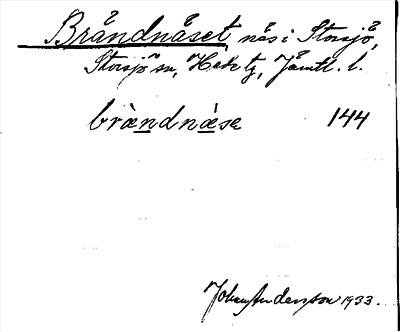 Brändnäset, näs i Storsjö,
Storsjö sn, Hede tg, Jämtl. l.
brä̀ndnä̀se 144
Johan Andersson 1933.